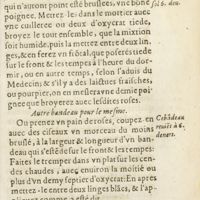 qui ayent point esté bruslees, vne bone
poignee. Mettez-les dans le mortier auec
vne cuilleree ou deux d'oxycrat tiede,
broyez le tout ensemble, que la mixtion
soit humide, puis la mettez entre deux lin-
ges, & en ferez vn frotal, que poserez dessus
sur le front & les tempes à l'heure du dor-
mir, ou en autre temps, selon l'aduis du
Medecin; & s'il y a des laictuës fraisches,
ou pourpier, on en meslera demye pognee
que broyerez auec lesdites roses.
Autre bandeau pour le mesme.
Ou prenez vn pain de roses, coupez-en
auec des ciseaux vn morceau du moins
bruslé, à la largeur & longueur d'vn ban-
deau qui s'estéde sur le front & les tempes:
Faites le tremper dans vn plat sur les cen-
dres chaudes, auec enuiron la moitié ou
plus d'vn demy septier d'oxycrat: En apres
mettez-le entre deux linges blács, & l'ap-
sol 6. den.
Ce bádeau
reuiēt à 6.
deniers.